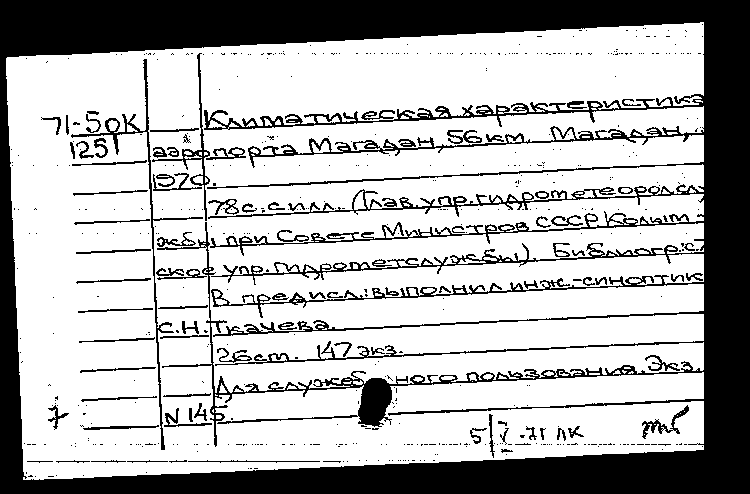 71-5оК Климатическая характеристика
1251 аэропорта Магадан, 56 км. Магадан,
1970.
78 с. с илл. (Глав. упр. гидрометеорол. слу
жбы при Совете Министров СССР. Колым-
ское упр. гидрометслужбы). Библиогр.: с.
В предисл.: выполнил инж.-синоптик
С.Н. Ткачева.
147 экз.
Для служебного пользования. Экз.
N 145.
5/V-71 ЛК